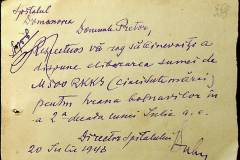 Spitalul
Domanovca
Domnule Pretor,
Respectuos vă rog să binevoiți a
dispune eliberarea sumei de
M 500 RKKS (cincisute mărci)
pentru hrana bolnavilor în
a 2ª decada lunii Iulie a.c.
Directorul Spitalului
20 Iulie 1943